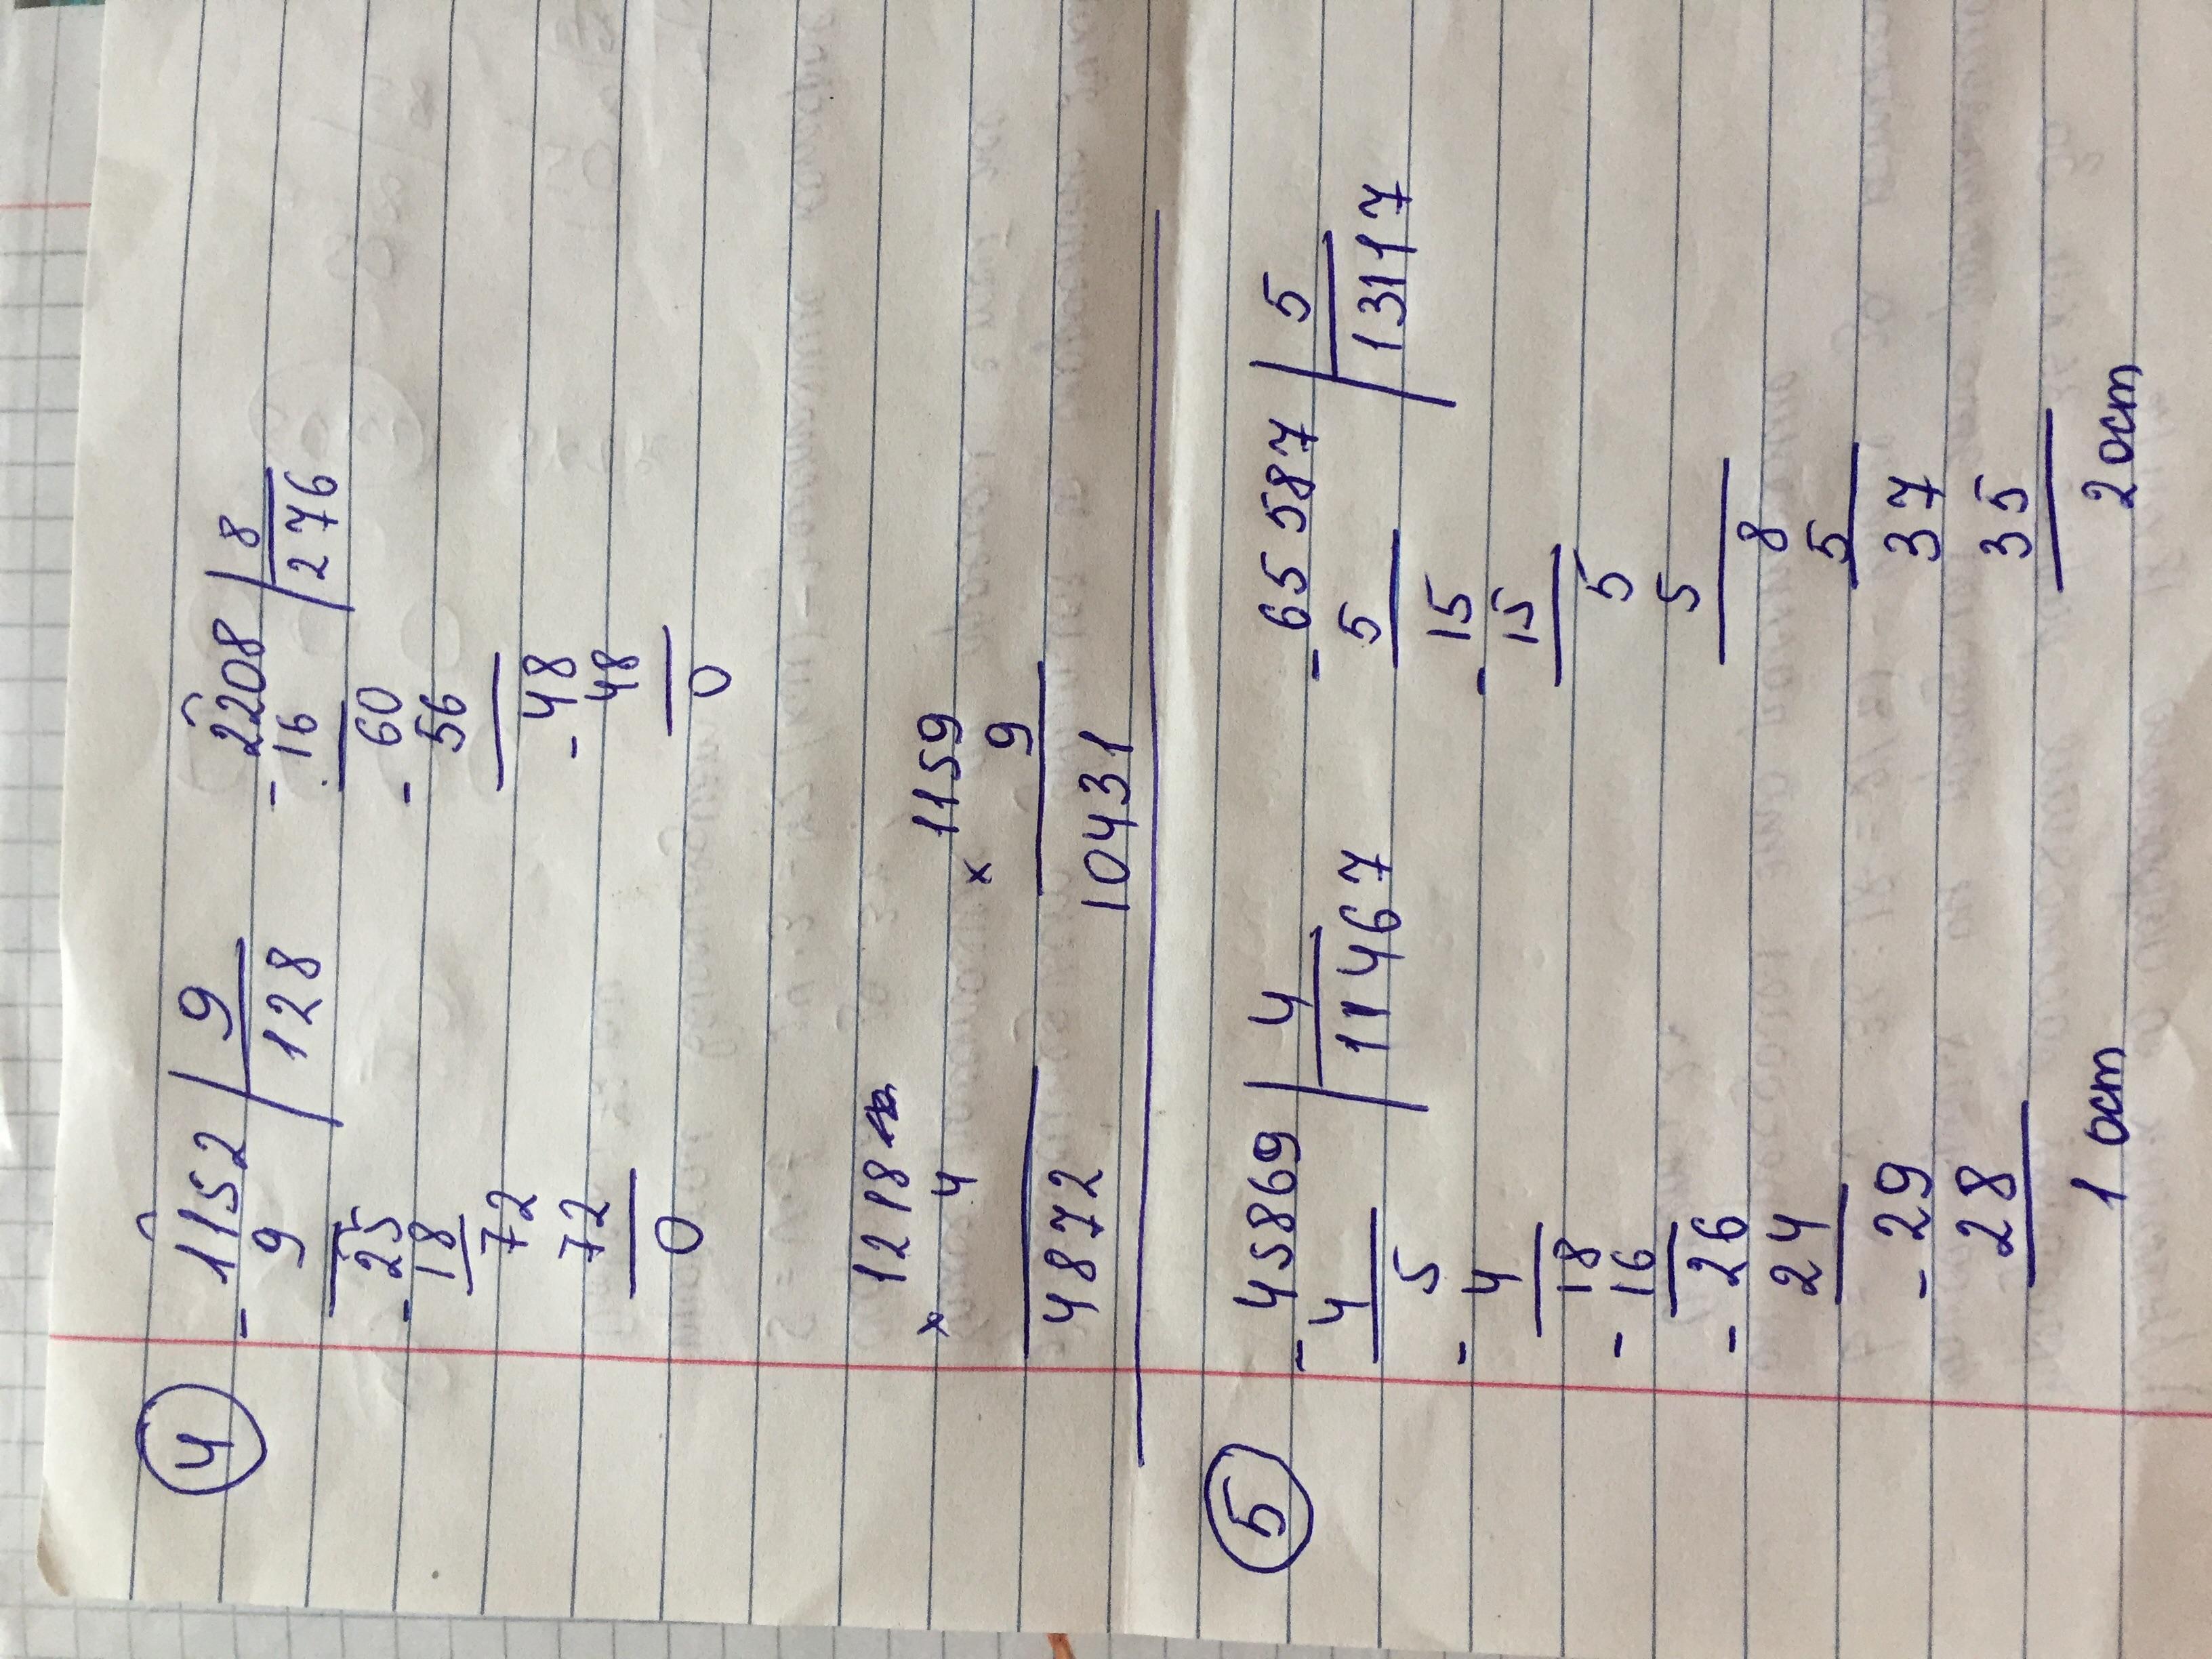 4
- 1152 | 9
9 128
- 25
18
72
72
0
- 2208 | 8
16 276
- 60
56
- 48
48
0
× 1218
4
4872
× 1159
9
10431
5
- 45869 | 4
4 11467
- 5
4
- 18
16
- 26
24
- 29
28
1 ост
- 65587 | 5
5 13117
- 15
15
5
5
8
5
37
35
2 ост